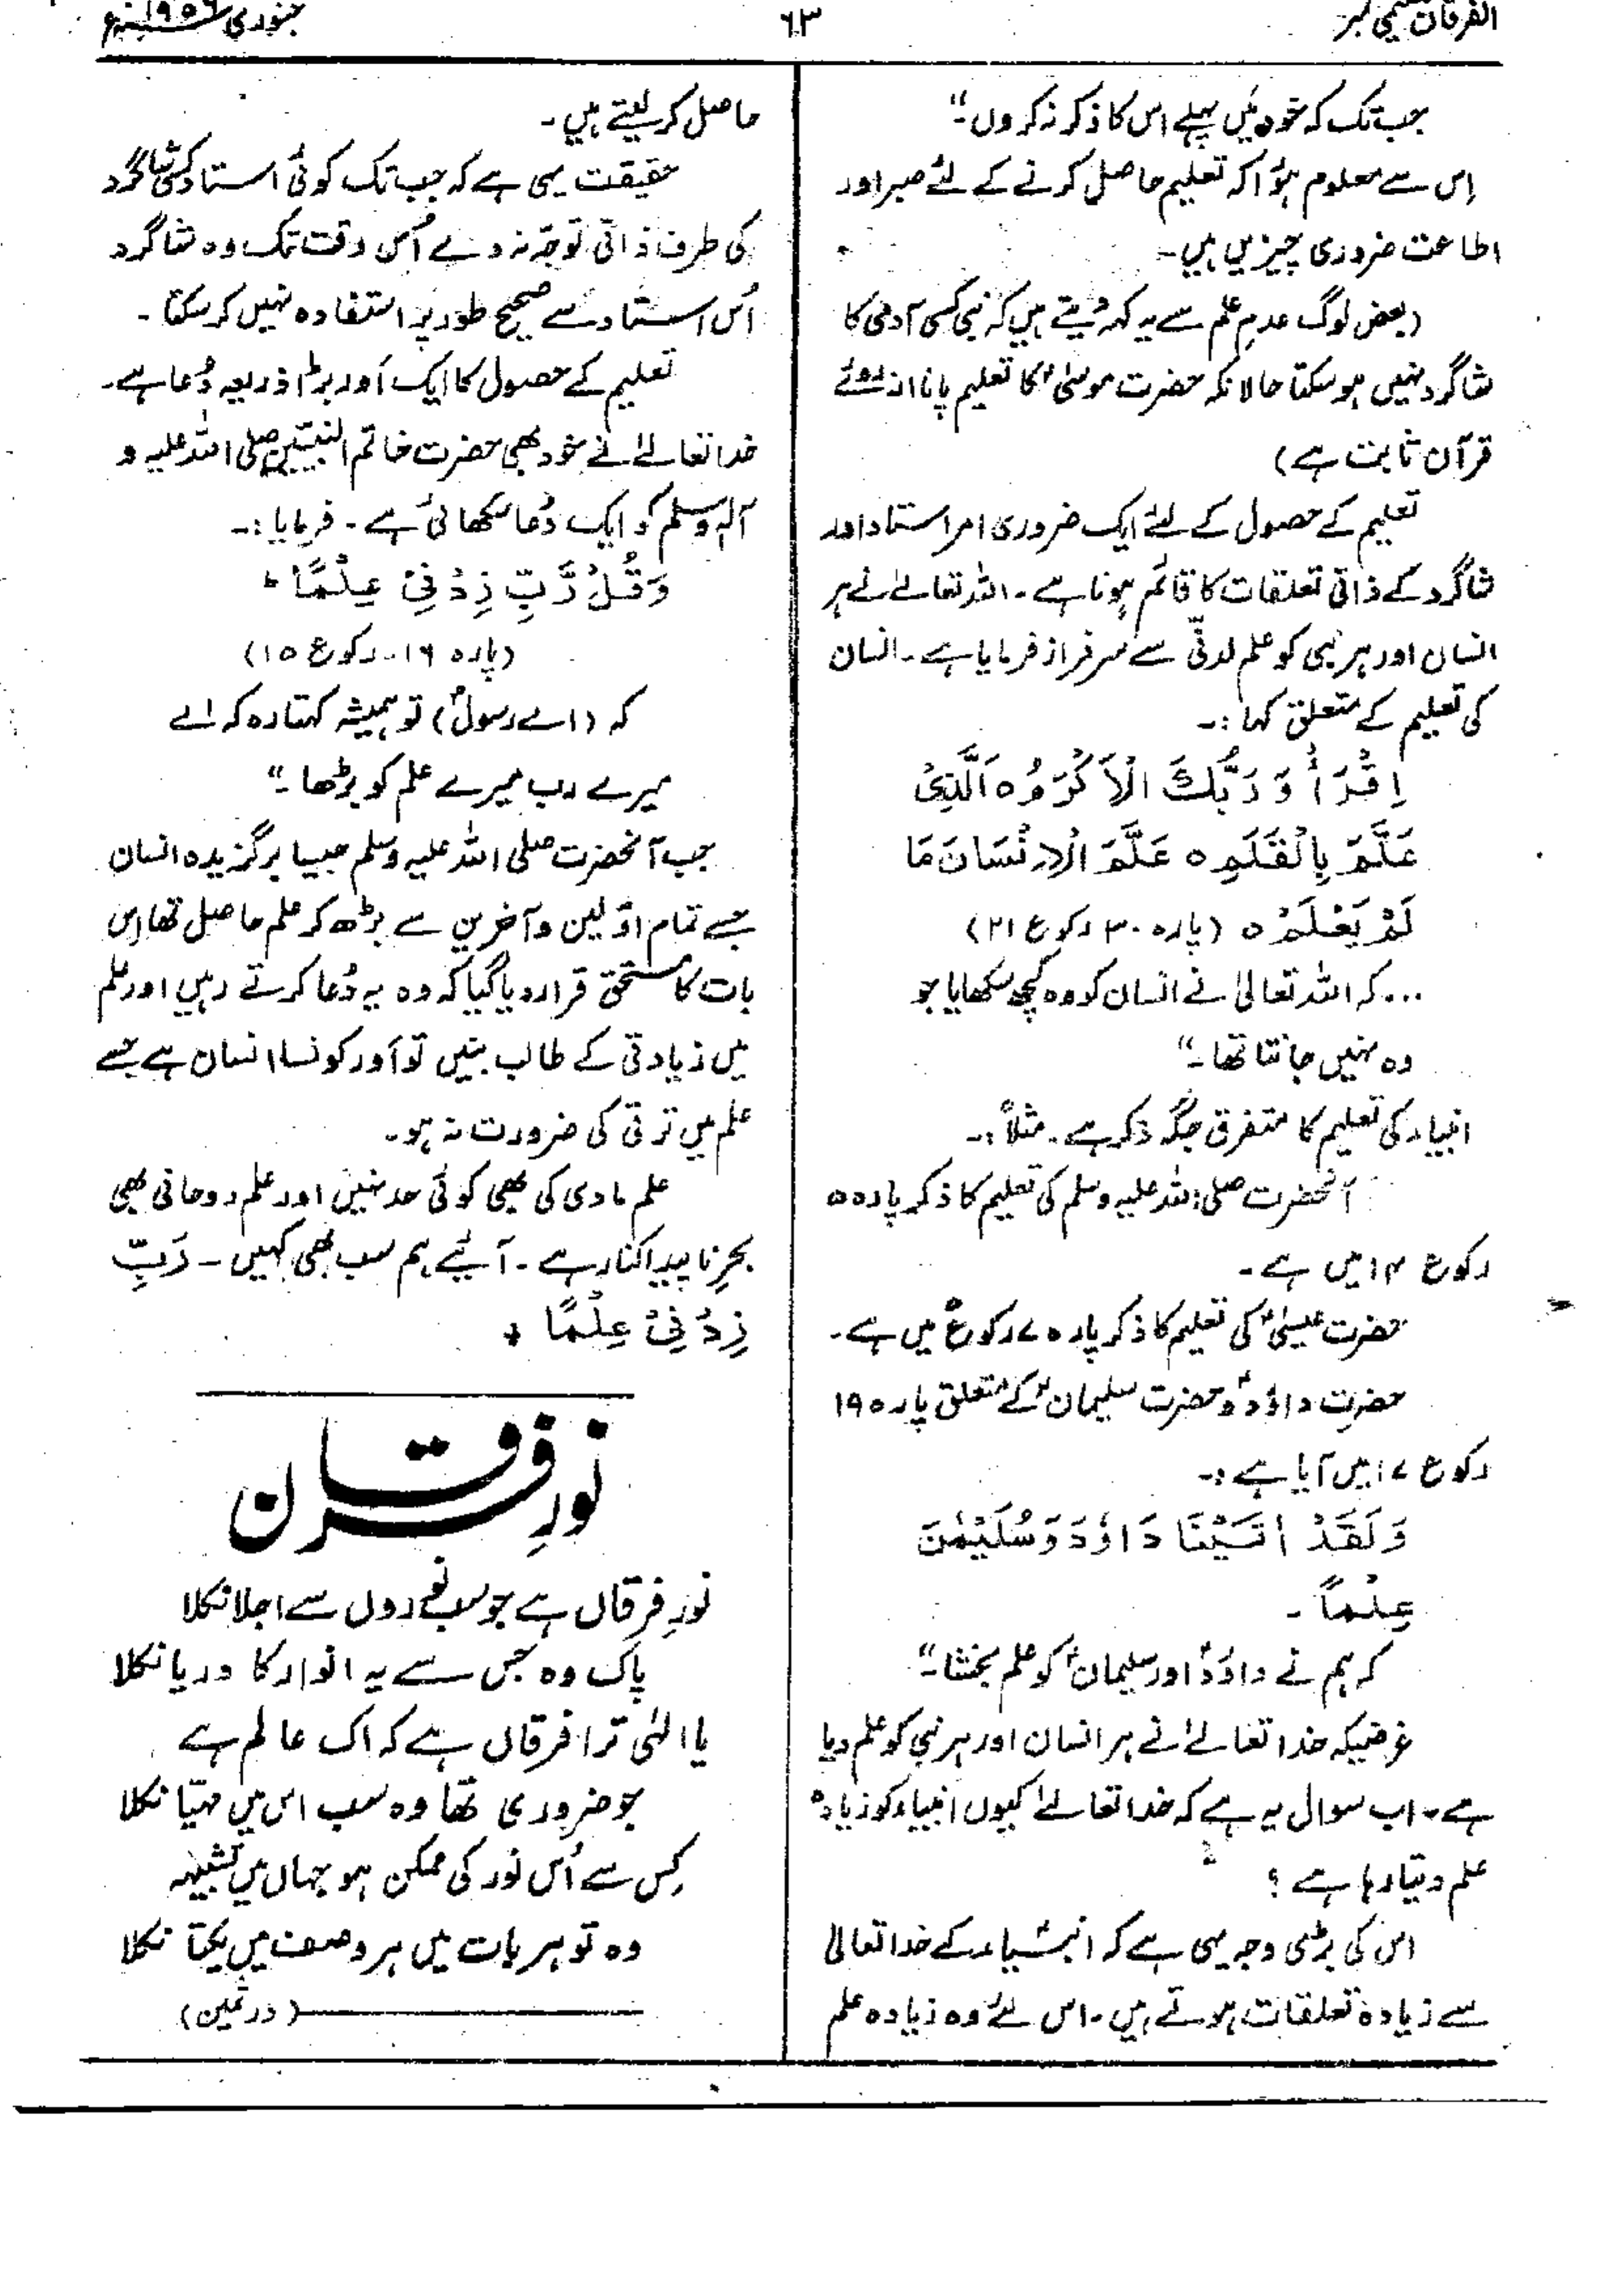 الفرقان تعلیمی نمبر
۶۳
جنوری ۱۹۵۶ء
جب تک کہ خود مَیں پہلے اس کا ذکر نہ کروں۔“
اِس سے معلوم ہؤا کہ تعلیم حاصل کرنے کے لئے صبر اور
اطاعت ضروری چیزیں ہیں۔
(بعض لوگ عدمِ علم سے یہ کہہ دیتے ہیں کہ نبی کسی آدمی کا
شاگرد نہیں ہو سکتا حالانکہ حضرت موسیٰؑ کا تعلیم پانا از روئے
قرآن ثابت ہے)
تعلیم کے حصول کے لئے ایک ضروری امر استاد اور
شاگرد کے ذاتی تعلقات کا قائم ہونا ہے۔ اللہ تعالےٰ نے ہر
انسان اور ہر نبی کو علم لدنّی سے سرفراز فرمایا ہے۔ انسان
کی تعلیم کے متعلق کہا:۔
اِقْرَأْ وَ رَبُّكَ الْاَكْرَمُ ہ الَّذِیْ
عَلَّمَ بِالْقَلَمِ ہ عَلَّمَ الْاِنْسَانَ مَا
لَمْ یَعْلَمْ ہ (پارہ ۳۰ رکوع ۲۱)
...کہ اللہ تعالیٰ نے انسان کو وہ کچھ سکھایا جو
وہ نہیں جانتا تھا۔“
انبیاء کی تعلیم کا متفرق جگہ ذکر ہے۔ مثلاً:۔
آنحضرت صلی اللہ علیہ وسلم کی تعلیم کا ذکر پارہ ۵
رکوع ۱۴ میں ہے۔
حضرت عیسیٰؑ کی تعلیم کا ذکر پارہ ۷ رکوع ۵ میں ہے۔
حضرت داؤدؑ و حضرت سلیمانؑ کے متعلق پارہ ۱۹
رکوع ۱۷ میں آیا ہے:۔
وَلَقَدْ اٰتَیْنَا دَاوٗدَ وَ سُلَیْمٰنَ
عِلْمًا۔
کہ ہم نے داؤدؑ اور سلیمانؑ کو علم بخشا۔“
غرضیکہ خدا تعالےٰ نے ہر انسان اور ہر نبی کو علم دیا
ہے۔ اب سوال یہ ہے کہ خدا تعالےٰ کیوں انبیاء کو زیادہ
علم دیتا رہا ہے؟
اس کی بڑی وجہ یہی ہے کہ انبیاء کے خدا تعالیٰ
سے زیادہ تعلقات ہوتے ہیں۔ اس لئے وہ زیادہ علم
حاصل کر لیتے ہیں۔
حقیقت یہی ہے کہ جب تک کوئی استاد کسی شاگرد
کی طرف ذاتی توجّہ نہ دے اُس وقت تک وہ شاگرد
اُس استاد سے صحیح طور پر استفادہ نہیں کر سکتا۔
تعلیم کے حصول کا ایک اَور بڑا ذریعہ دُعا ہے۔
خدا تعالےٰ نے خود بھی حضرت خاتم النبیّین صلی اللہ علیہ و
آلہٖ وسلم کو ایک دُعا سکھائی ہے۔ فرمایا:۔
وَقُلْ رَّبِّ زِدْنِیْ عِلْمًا ط
(پارہ ۱۶۔ رکوع ۱۵)
کہ (اے رسولؐ) تو ہمیشہ کہتا رہ کہ اے
میرے رب میرے علم کو بڑھا۔“
جب آنحضرت صلی اللہ علیہ وسلم جیسا برگزیدہ انسان
جسے تمام اوّلین و آخرین سے بڑھ کر علم حاصل تھا اِس
بات کا مستحق قرار دیا گیا کہ وہ یہ دُعا کرتے رہیں اور علم
میں زیادتی کے طالب بنیں تو اَور کونسا انسان ہے جسے
علم میں ترقی کی ضرورت نہ ہو۔
علم مادی کی بھی کوئی حد نہیں اور علم روحانی بھی
بحرِ ناپیدا کنار ہے۔ آئیے ہم سب بھی کہیں۔ رَبِّ
زِدْنِیْ عِلْمًا +
نورِ فرقان
نورِ فرقاں ہے جو سب نوروں سے اجلا نکلا
پاک وہ جس سے یہ انوار کا دریا نکلا
یا الٰہی ترا فرقاں ہے کہ اک عالم ہے
جو ضروری تھا وہ سب اس میں مہیّا نکلا
کِس سے اُس نور کی ممکن ہو جہاں میں تشبیہہ
وہ تو ہر بات میں ہر وصف میں یکتا نکلا
(درثمین)